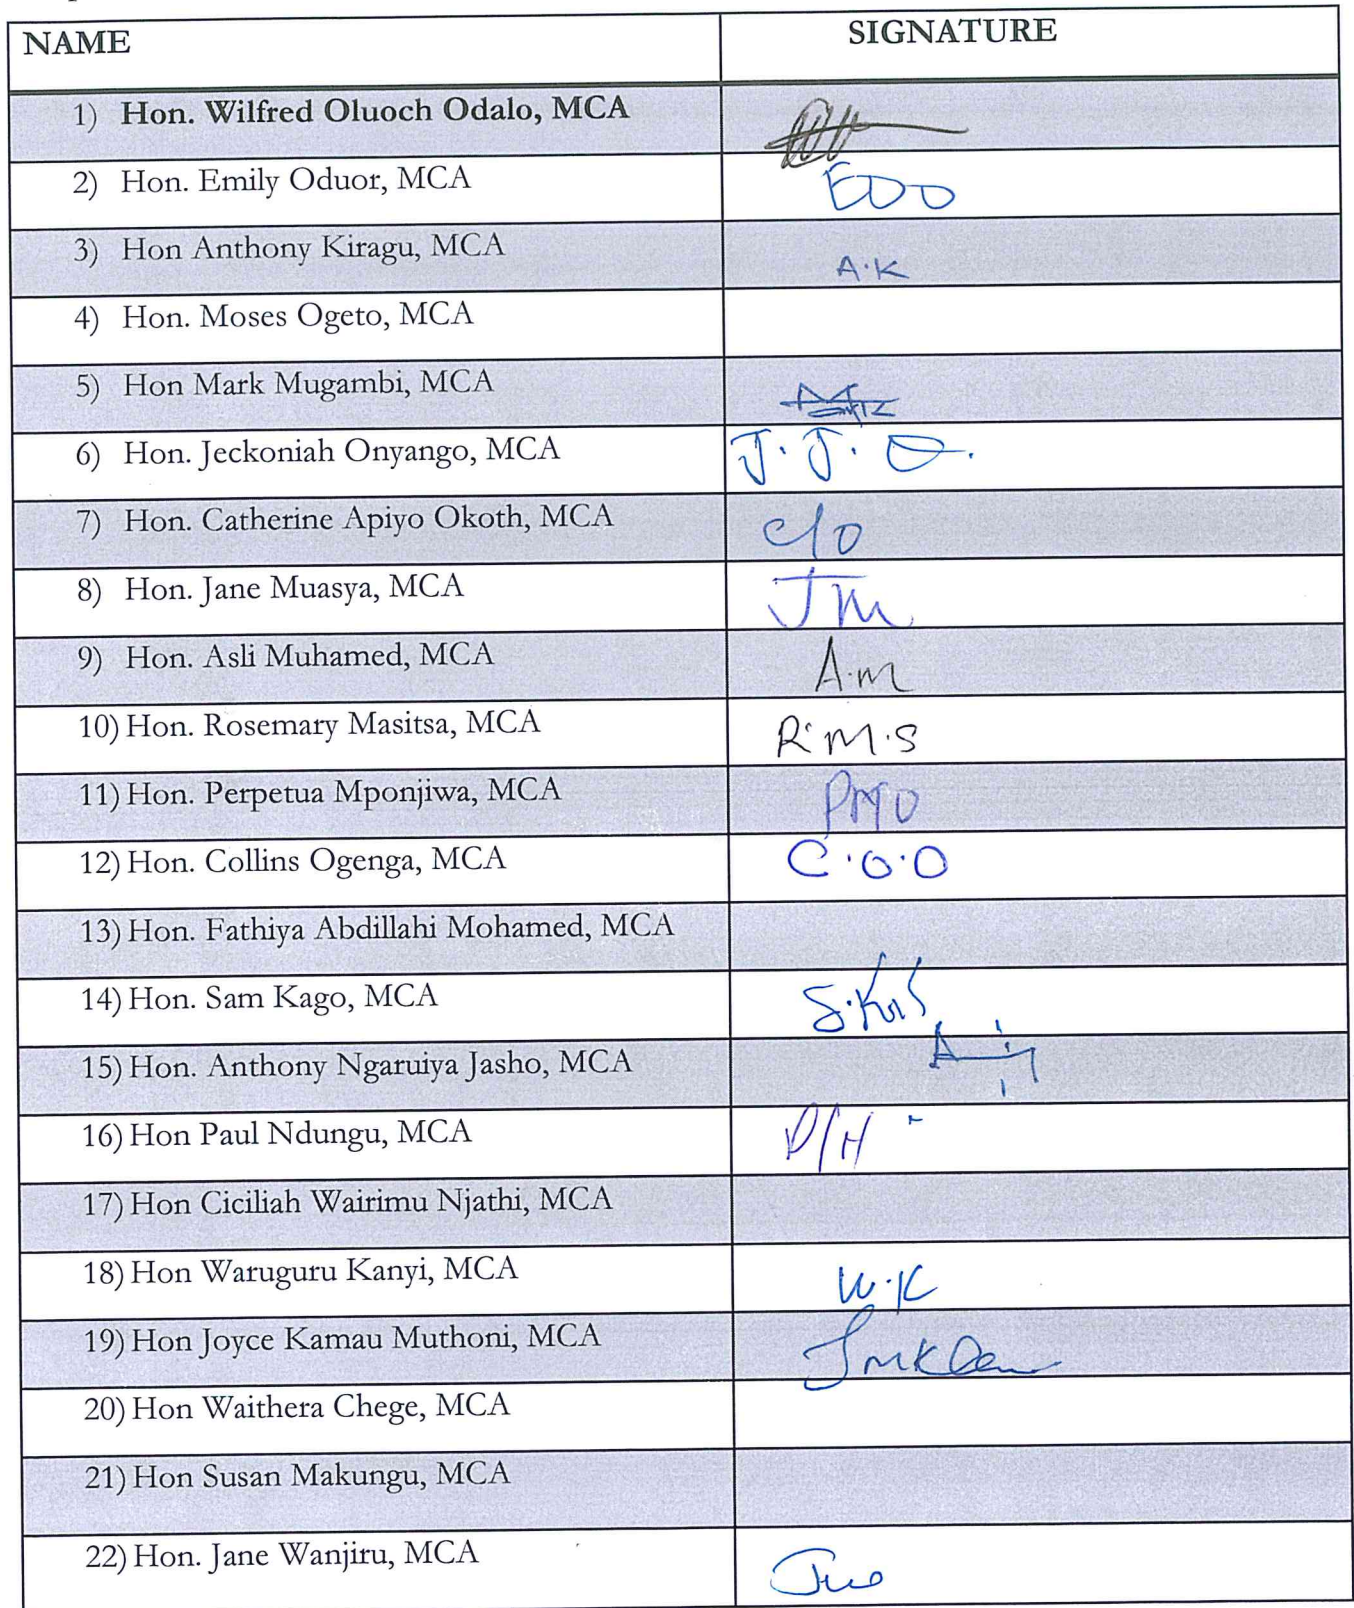 NAME SIGNATURE
1) Hon. Wilfred Oluoch Odalo, MCA
2) Hon. Emily Oduor, MCA EOO
3) Hon Anthony Kiragu, MCA A.K
4) Hon. Moses Ogeto, MCA
5) Hon Mark Mugambi, MCA
6) Hon. Jeckoniah Onyango, MCA J.J.O.
7) Hon. Catherine Apiyo Okoth, MCA c/o
8) Hon. Jane Muasya, MCA JM
9) Hon. Asli Muhamed, MCA A.m
10) Hon. Rosemary Masitsa, MCA R.M.S
11) Hon. Perpetua Mponjiwa, MCA PMO
12) Hon. Collins Ogenga, MCA C.O.O
13) Hon. Fathiya Abdillahi Mohamed, MCA
14) Hon. Sam Kago, MCA
15) Hon. Anthony Ngaruiya Jasho, MCA
16) Hon Paul Ndungu, MCA
17) Hon Ciciliah Wairimu Njathi, MCA
18) Hon Waruguru Kanyi, MCA W.K
19) Hon Joyce Kamau Muthoni, MCA
20) Hon Waithera Chege, MCA
21) Hon Susan Makungu, MCA
22) Hon. Jane Wanjiru, MCA